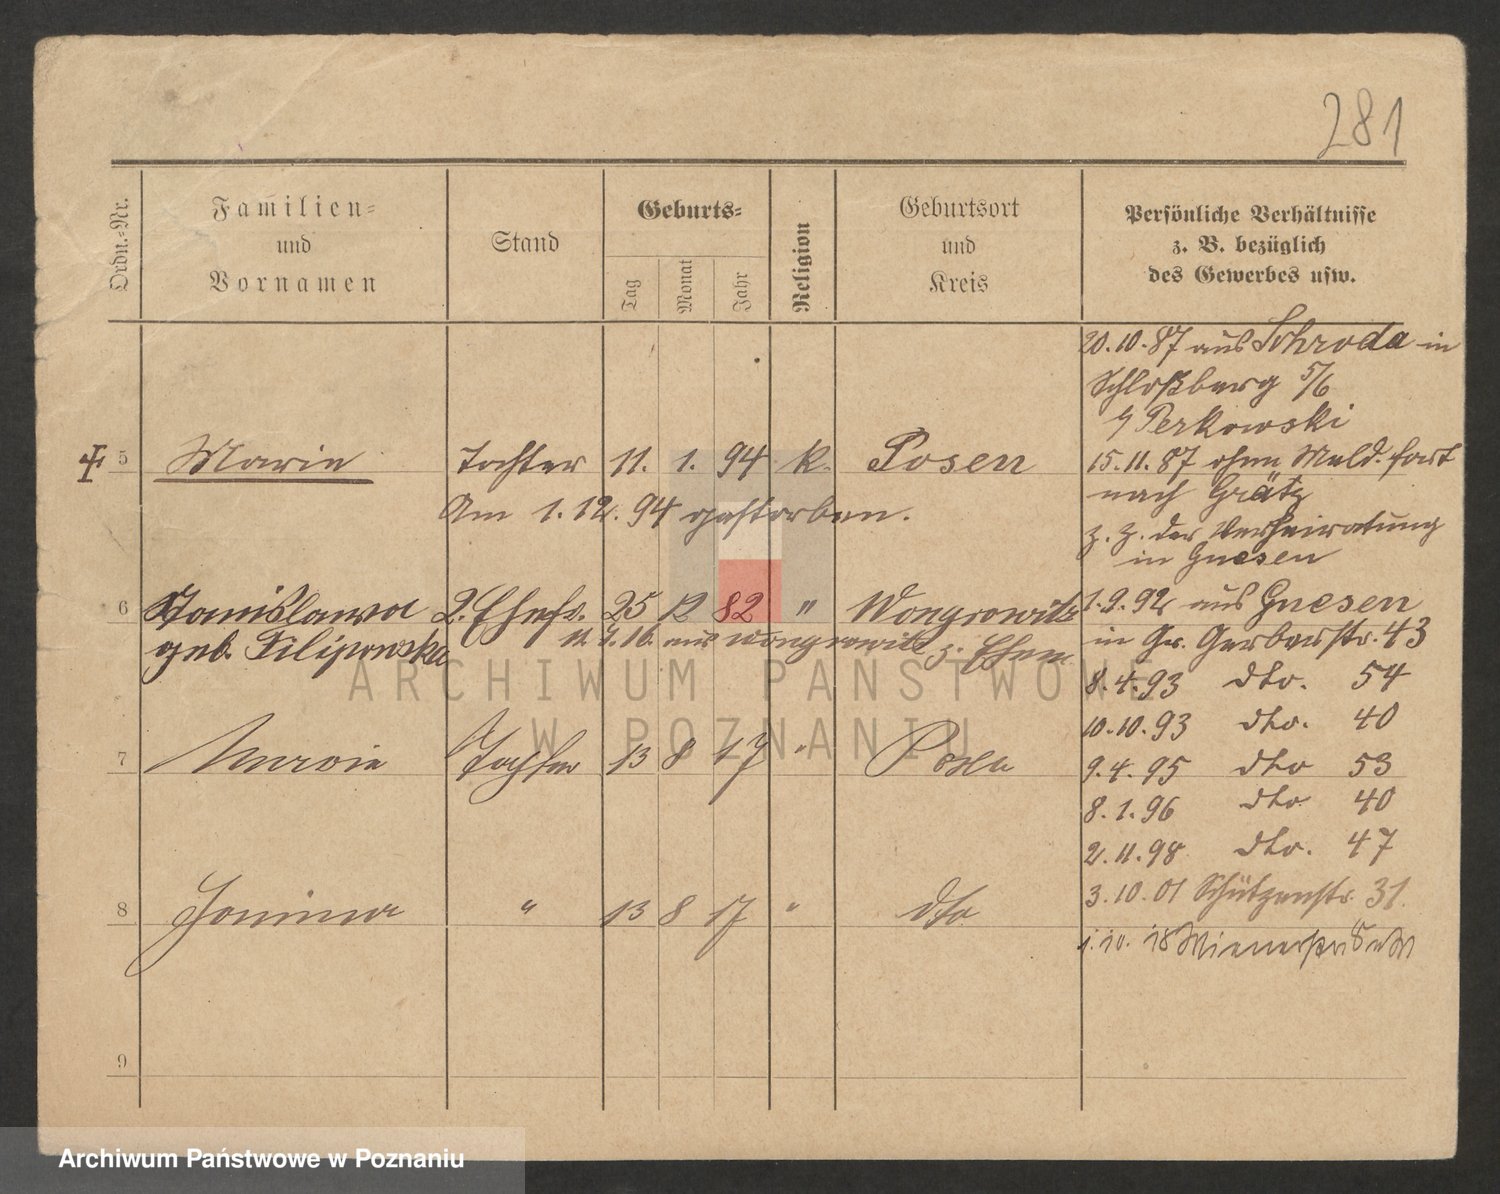 281
Ordn.-Nr.
Familien-
und
Vornamen
Stand
Geburts-
Tag
Monat
Jahr
Religion
Geburtsort
und
Kreis
Persönliche Verhältnisse
z. B. bezüglich
des Gewerbes usw.
5 Marie Tochter 11. 1. 94 k. Posen
Am 1. 12. 94 gestorben.
6 Stanislawa 2. Ehefr. 25 12 82 " Wongrowitz
geb. Filipowska 11. 7. 16. aus Wongrowitz z. Ehem.
7 Marie Tochter 13 8 17 " Posen
8 Janina " 13 8 17 " dto.
9
20.10.87 aus Schroda in
Schloßberg 5/6
b/ Perkowski
15.11.87 ohne Meld. fort
nach Grätz
z. Z. der Verheiratung
in Gnesen
1.9.92 aus Gnesen
in Gr. Gerberstr. 43
8.4.93 dto. 54
10.10.93 dto. 40
9.4.95 dto 53
8.1.96 dto 40
2.11.98 dto. 47
3.10.01 Schützenstr. 31.
1.10.18 Wienerstr
ARCHIWUM PAŃSTWOWE
W POZNANIU
Archiwum Państwowe w Poznaniu